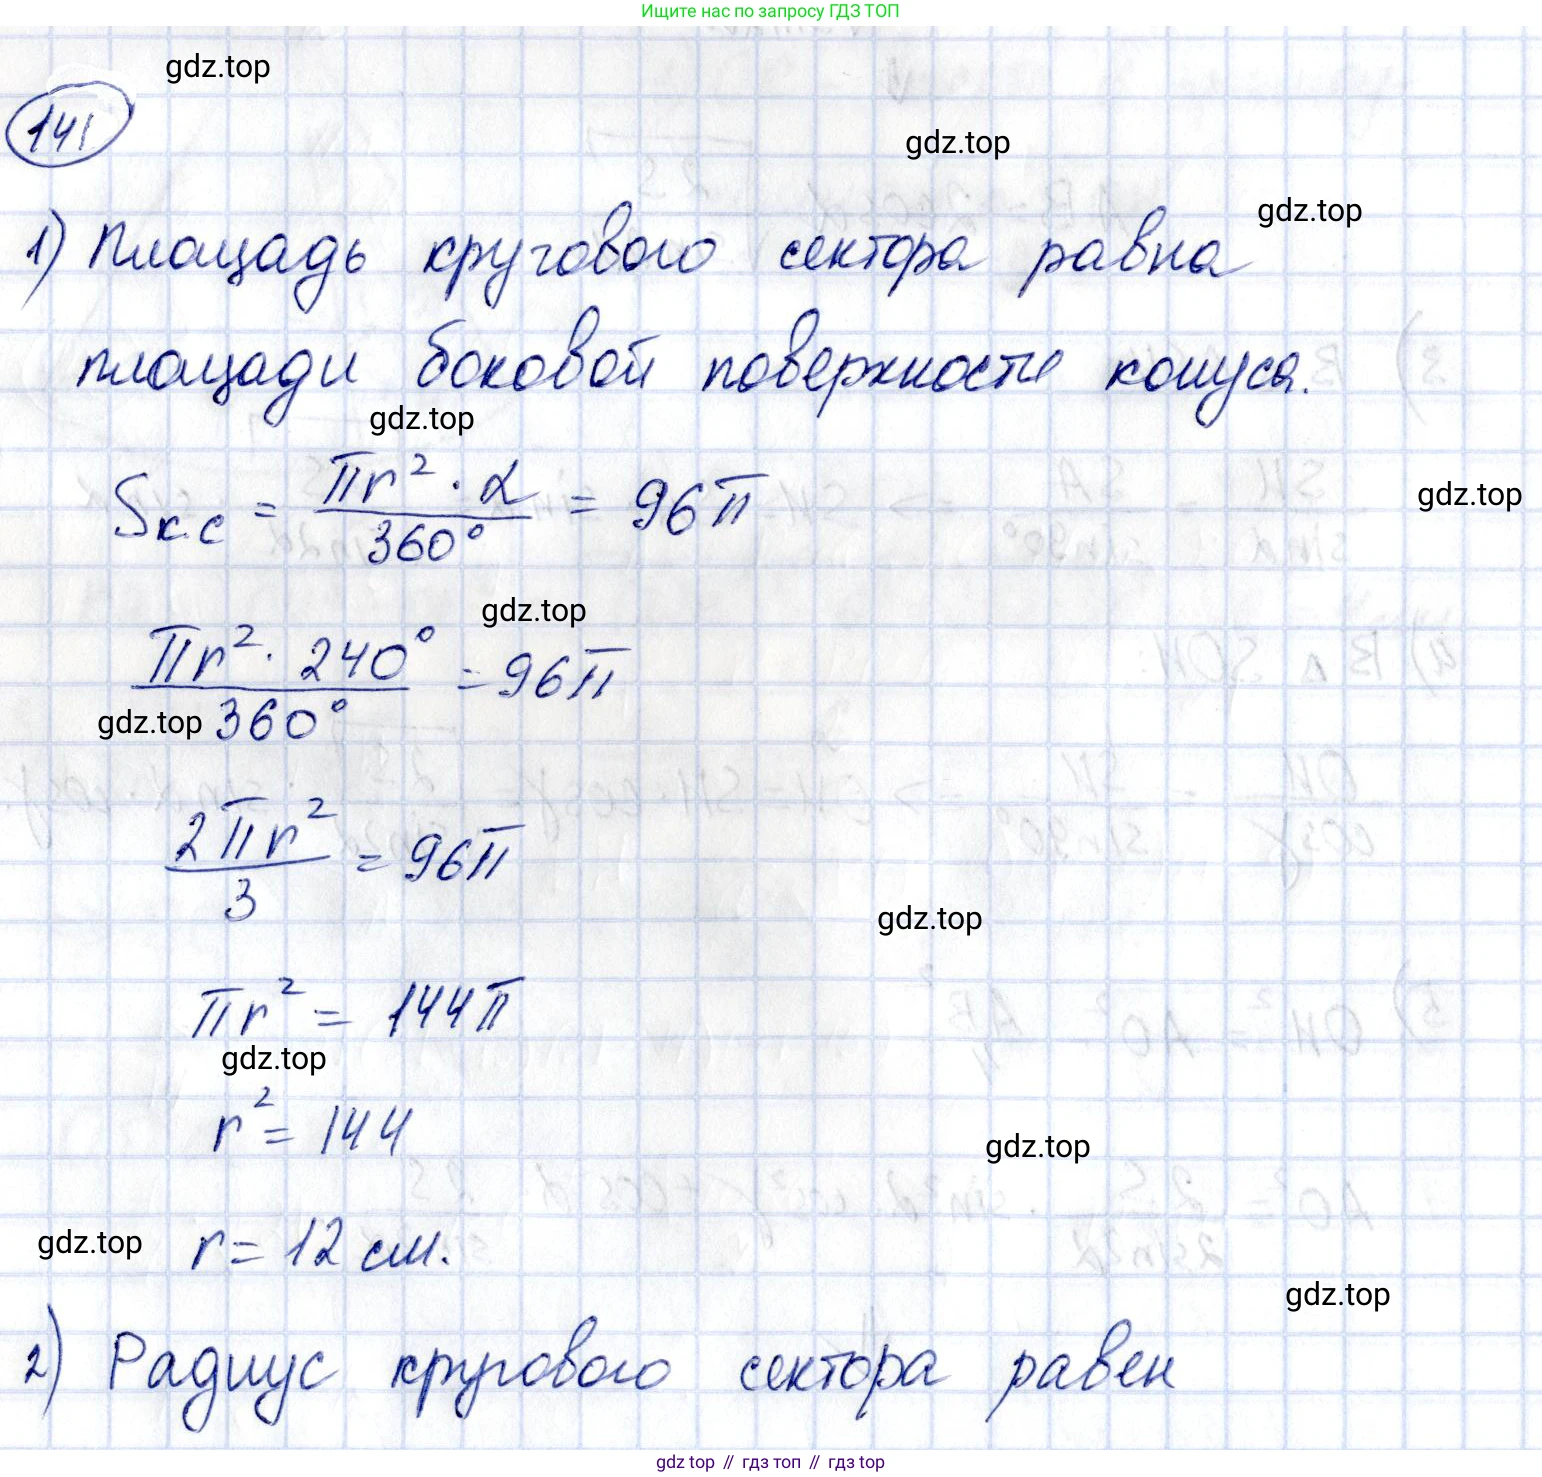 Ищите нас по запросу ГДЗ ТОП
gdz.top
141
gdz.top
gdz.top
1) Площадь кругового сектора равна
площади боковой поверхности конуса.
gdz.top
Sк.с = πr² · α / 360° = 96π
gdz.top
gdz.top
πr² · 240° / 360° = 96π
gdz.top
2πr² / 3 = 96π
gdz.top
πr² = 144π
gdz.top
r² = 144
gdz.top
gdz.top
r = 12 см.
gdz.top
2) Радиус кругового сектора равен
gdz.top // гдз топ // гдз top